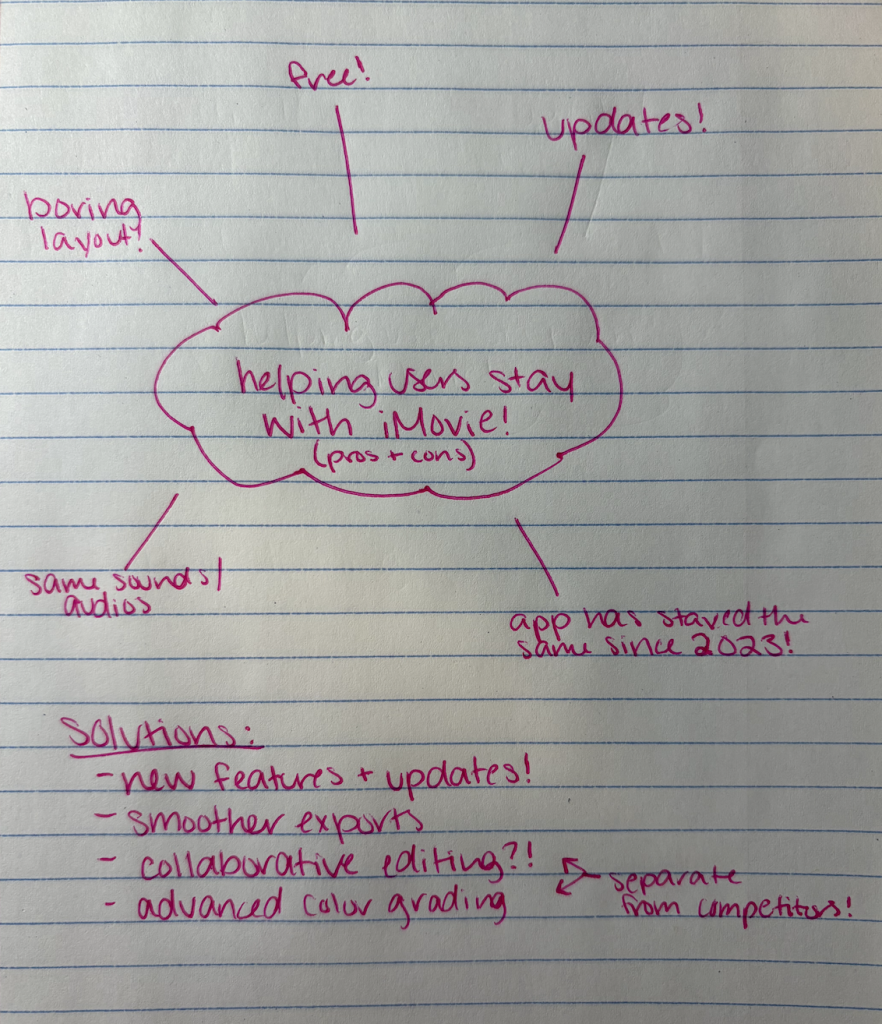 free!
updates!
boring
layout?
helping users stay
with iMovie!
(pros + cons)
same sounds/
audios
app has stayed the
same since 2023!
Solutions:
- new features + updates!
- smoother exports
- collaborative editing?!
- advanced color grading
separate
from competitors!